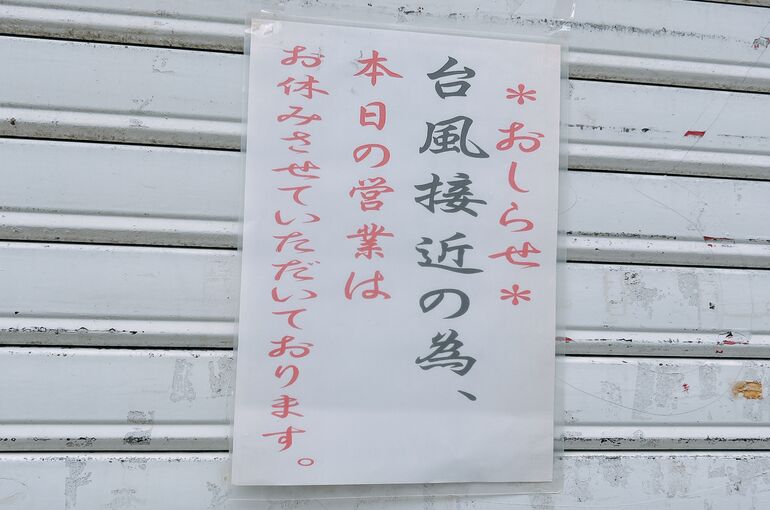 ＊おしらせ＊
台風接近の為、
本日の営業は
お休みさせていただいております。